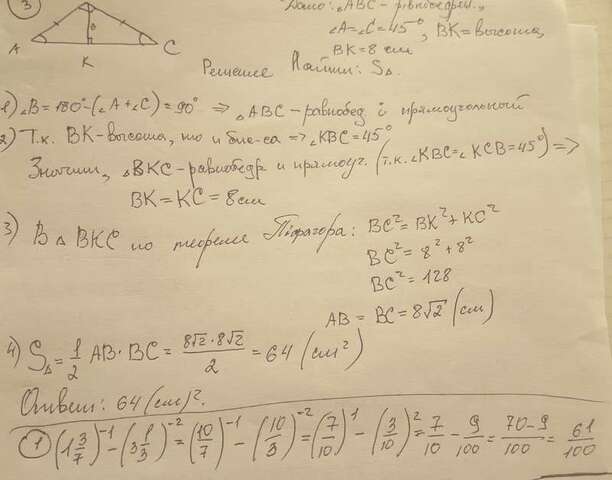 3
Дано: △ABC – равнобедрен.,
∠A=∠C=45°, BK=высота,
BK=8 см
A K C
8
Решение Найти: S△.
1) ∠B=180°-(∠A+∠C)=90° ⇒ △ABC-равнобед. і прямоугольный
2) Т.к. BK-высота, то и бис-са ⇒ ∠KBC=45°
Значит, △BKC-равнобедр и прямоуг. (т.к. ∠KBC=∠KCB=45°) ⇒
BK=KC=8см
3) В △ BKC по теореме Піфагора: BC²=BK²+KC²
BC²=8²+8²
BC²=128
AB = BC=8√2 (см)
4) S△=1/2 AB·BC = 8√2·8√2/2 = 64 (см²)
Ответ: 64 (см)².
1 (1 3/7)⁻¹-(3 1/3)⁻²=(10/7)⁻¹-(10/3)⁻²=(7/10)¹-(3/10)²=7/10-9/100=70-9/100=61/100